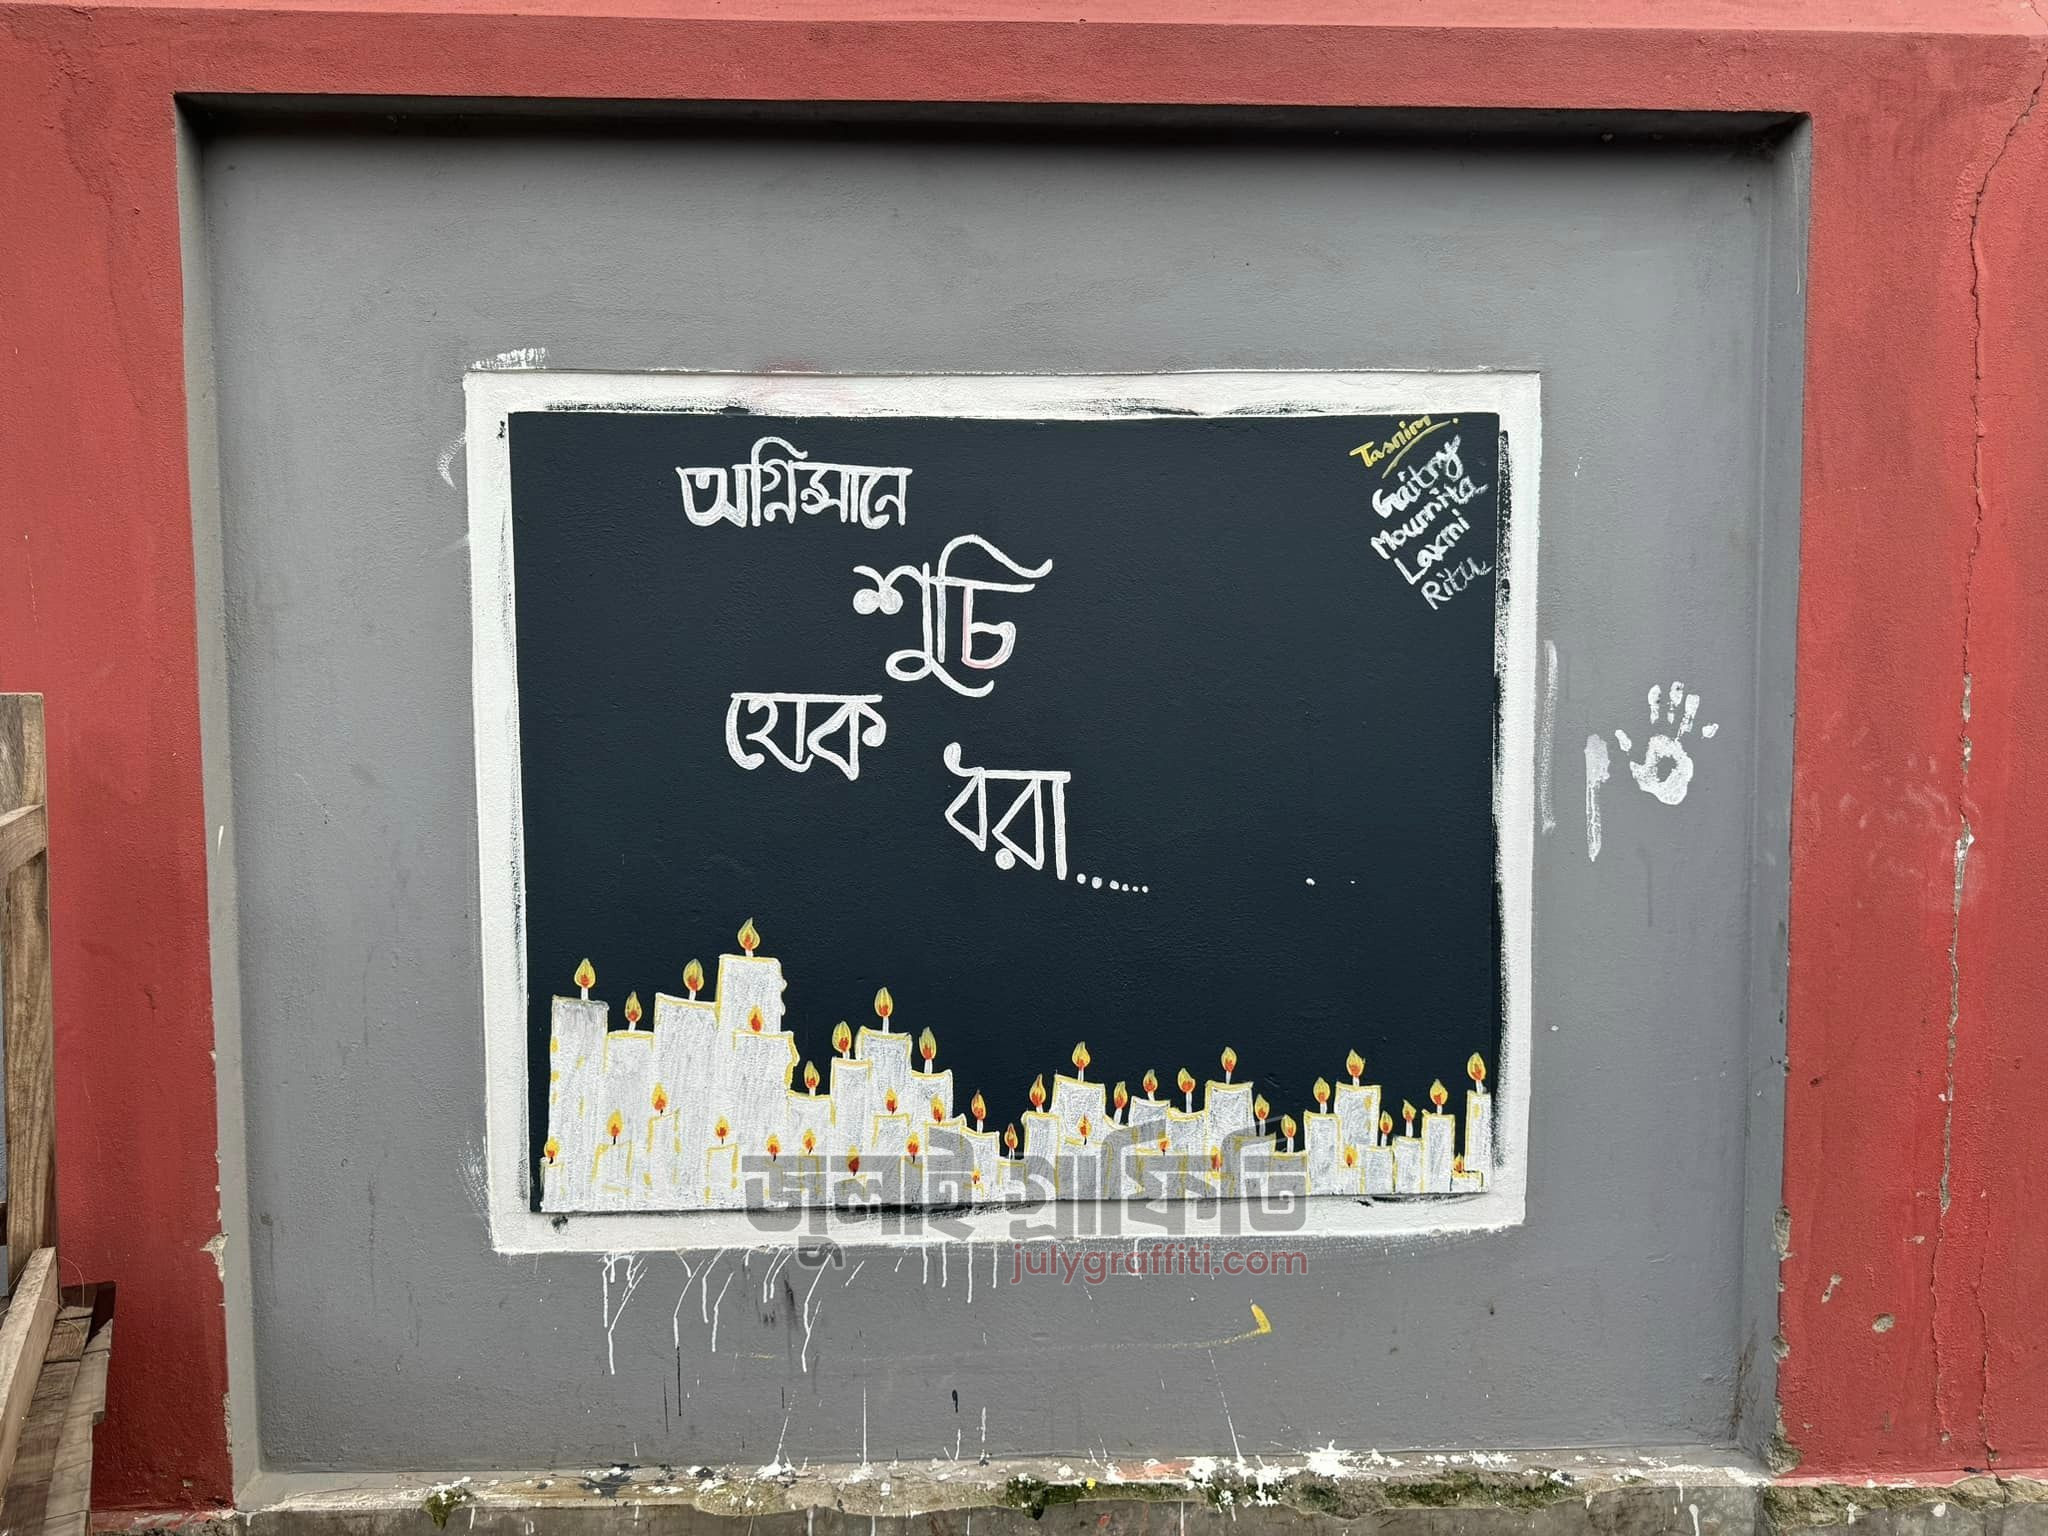 অগ্নিস্নানে
শুচি
হোক
ধরা......
Tasnim
Gaitry
Moumita
Laxmi
Ritu
জুলাই গ্রাফিতি
julygraffiti.com